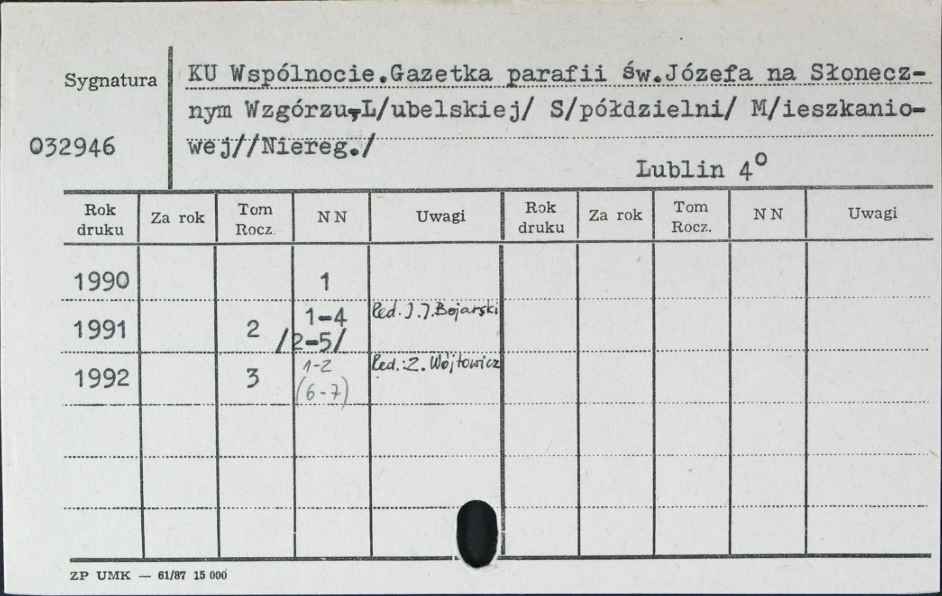 Sygnatura
032946
KU Wspólnocie.Gazetka parafii św.Józefa na Słonecz-
nym Wzgórzu,L/ubelskiej/ S/półdzielni/ M/ieszkanio-
wej//Niereg./
Lublin 4°
Rok druku Za rok Tom Rocz. NN Uwagi Rok druku Za rok Tom Rocz. NN Uwagi
1990 1
1991 2 1-4 /2-5/ Red. J.J.Bojarski
1992 3 1-2 (6-7) Red.: Z. Wójtowicz
ZP UMK — 61/87 15 000